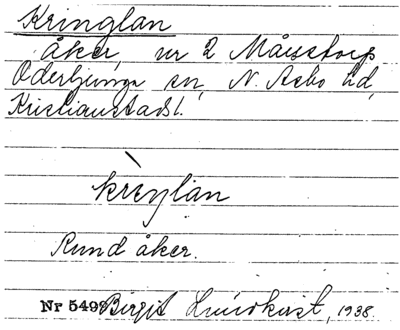 Kringlan
åker, nr 2 Månstorp
Oderljunga sn, N. Åsbo hd,
Kristianstads l.
krìŋlan
Rund åker.
Nr 5498 Birgit Lundkvist, 1938.